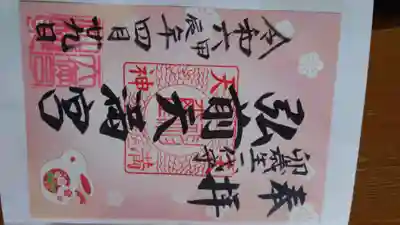 奉拝
卯歳生一代守
弘前天満宮
令和六甲辰年四月廿九日